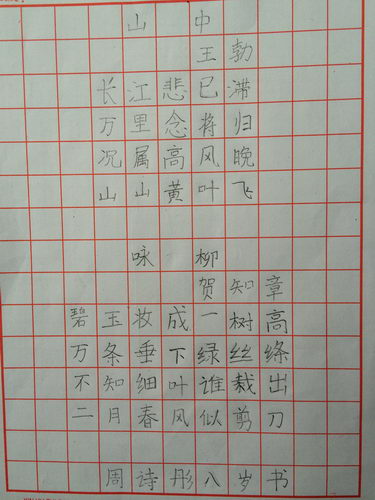 山中
王勃
长江悲已滞
万里念将归
况属高风晚
山山黄叶飞
咏柳
贺知章
碧玉妆成一树高
万条垂下绿丝绦
不知细叶谁栽出
二月春风似剪刀
周诗彤八岁书